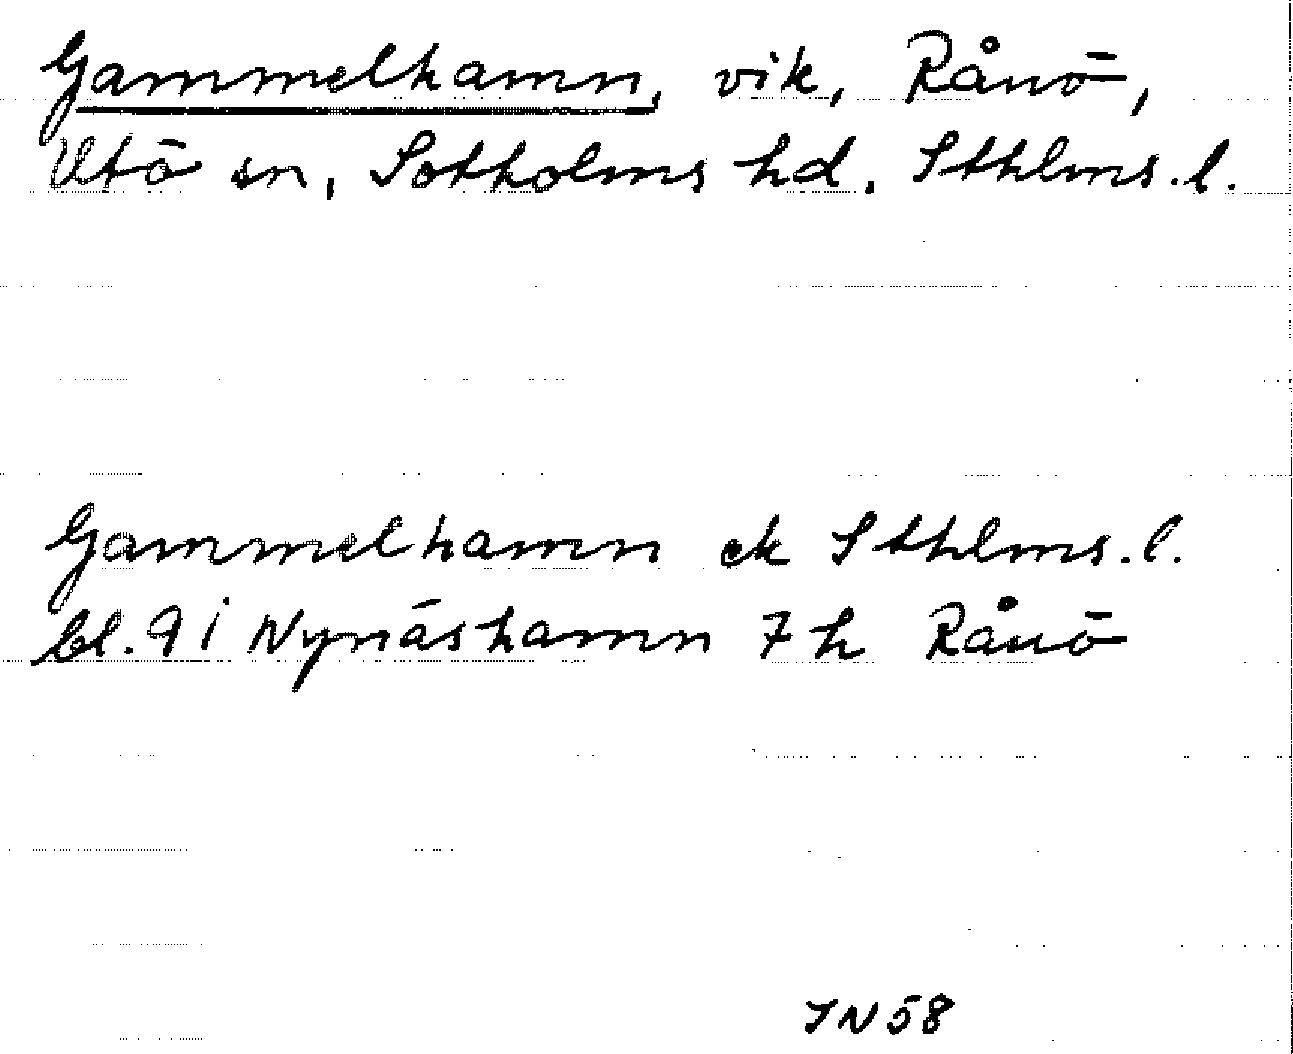 Gammelhamn, vik, Rånö,
Utö sn, Sotholms hd, Sthlms.l.
Gammelhamn ek Sthlms.l.
bl. 9 i Nynäshamn 7 h Rånö
IN 58